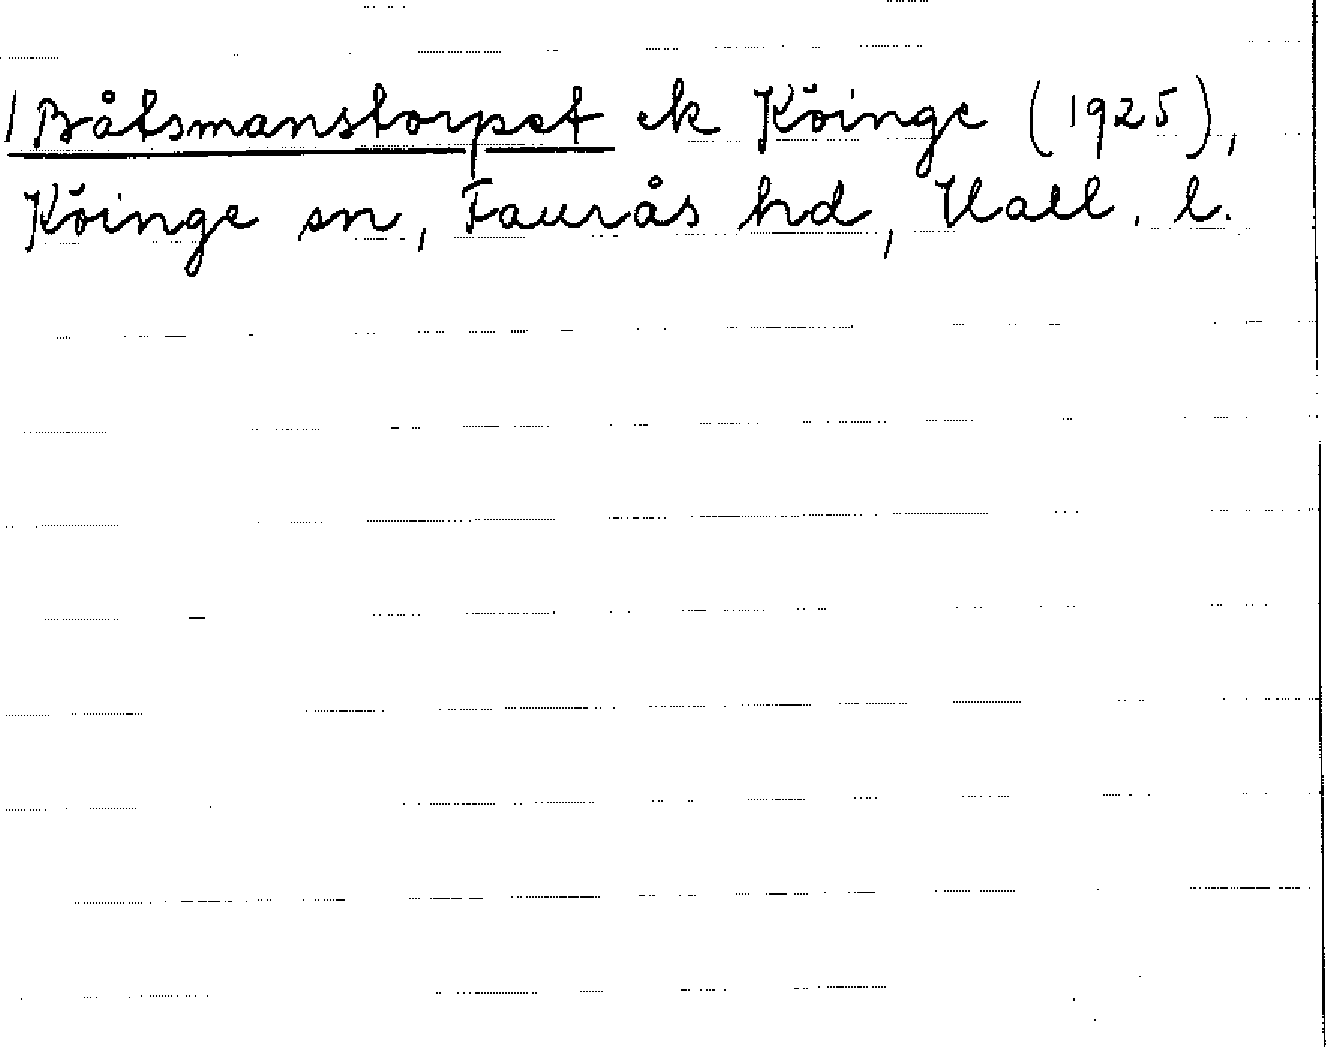 1 Båtsmanstorpet ek Köinge (1925),
Köinge sn, Faurås hd, Hall. l.